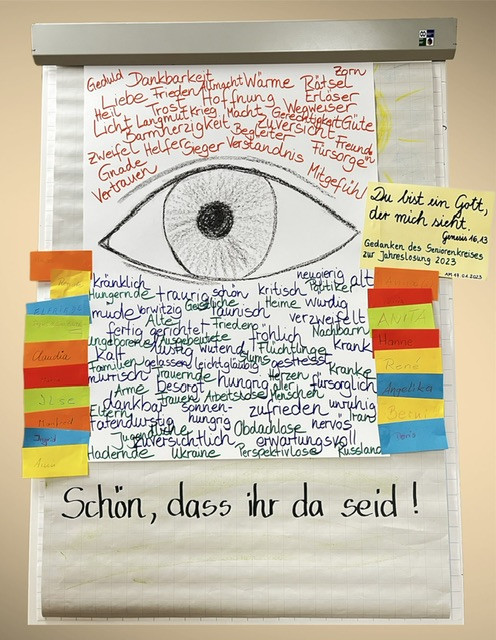 Zorn
Geduld Dankbarkeit Allmacht Wärme Rätsel
Liebe Frieden Hoffnung Erlöser
Heil Trost Macht Wegweiser
Licht Langmut Krieg Gerechtigkeit Güte
Barmherzigkeit Begleiter Zuversicht Freund
Zweifel Helfer Sieger Verständnis Fürsorge
Gnade Mitgefühl
Vertrauen
Du bist ein Gott,
der mich sieht.
Genesis 16,13
Gedanken des Seniorenkreises
zur Jahreslosung 2023
AM 17.01.2023
kränklich schön neugierig alt
Hungernde traurig kritisch Politiker
müde vorwitzig Geistliche Heime würdig
Alte launisch verzweifelt
fertig gerichtet Frieden Nachbarn
Ungeborene Ausgebeutete fröhlich krank
kalt lustig wütend Flüchtlinge
Familien gelassen leichtgläubig Slums gestresst Kranke
mürrisch Trauernde hungrig Herzen aller fürsorglich
Arme besorgt Frauen Arbeitslose Menschen
dankbar sonnen- zufrieden unruhig
Eltern hungrig Iran
tatendurstig Obdachlose nervös
Jugendliche zuversichtlich erwartungsvoll
Hadernde Ukraine Perspektivlose Russland
Claudia
Ilse
Manfred
Ingrid
ANITA
Hanne
René
Angelika
Bernd
Doris
Schön, dass ihr da seid !